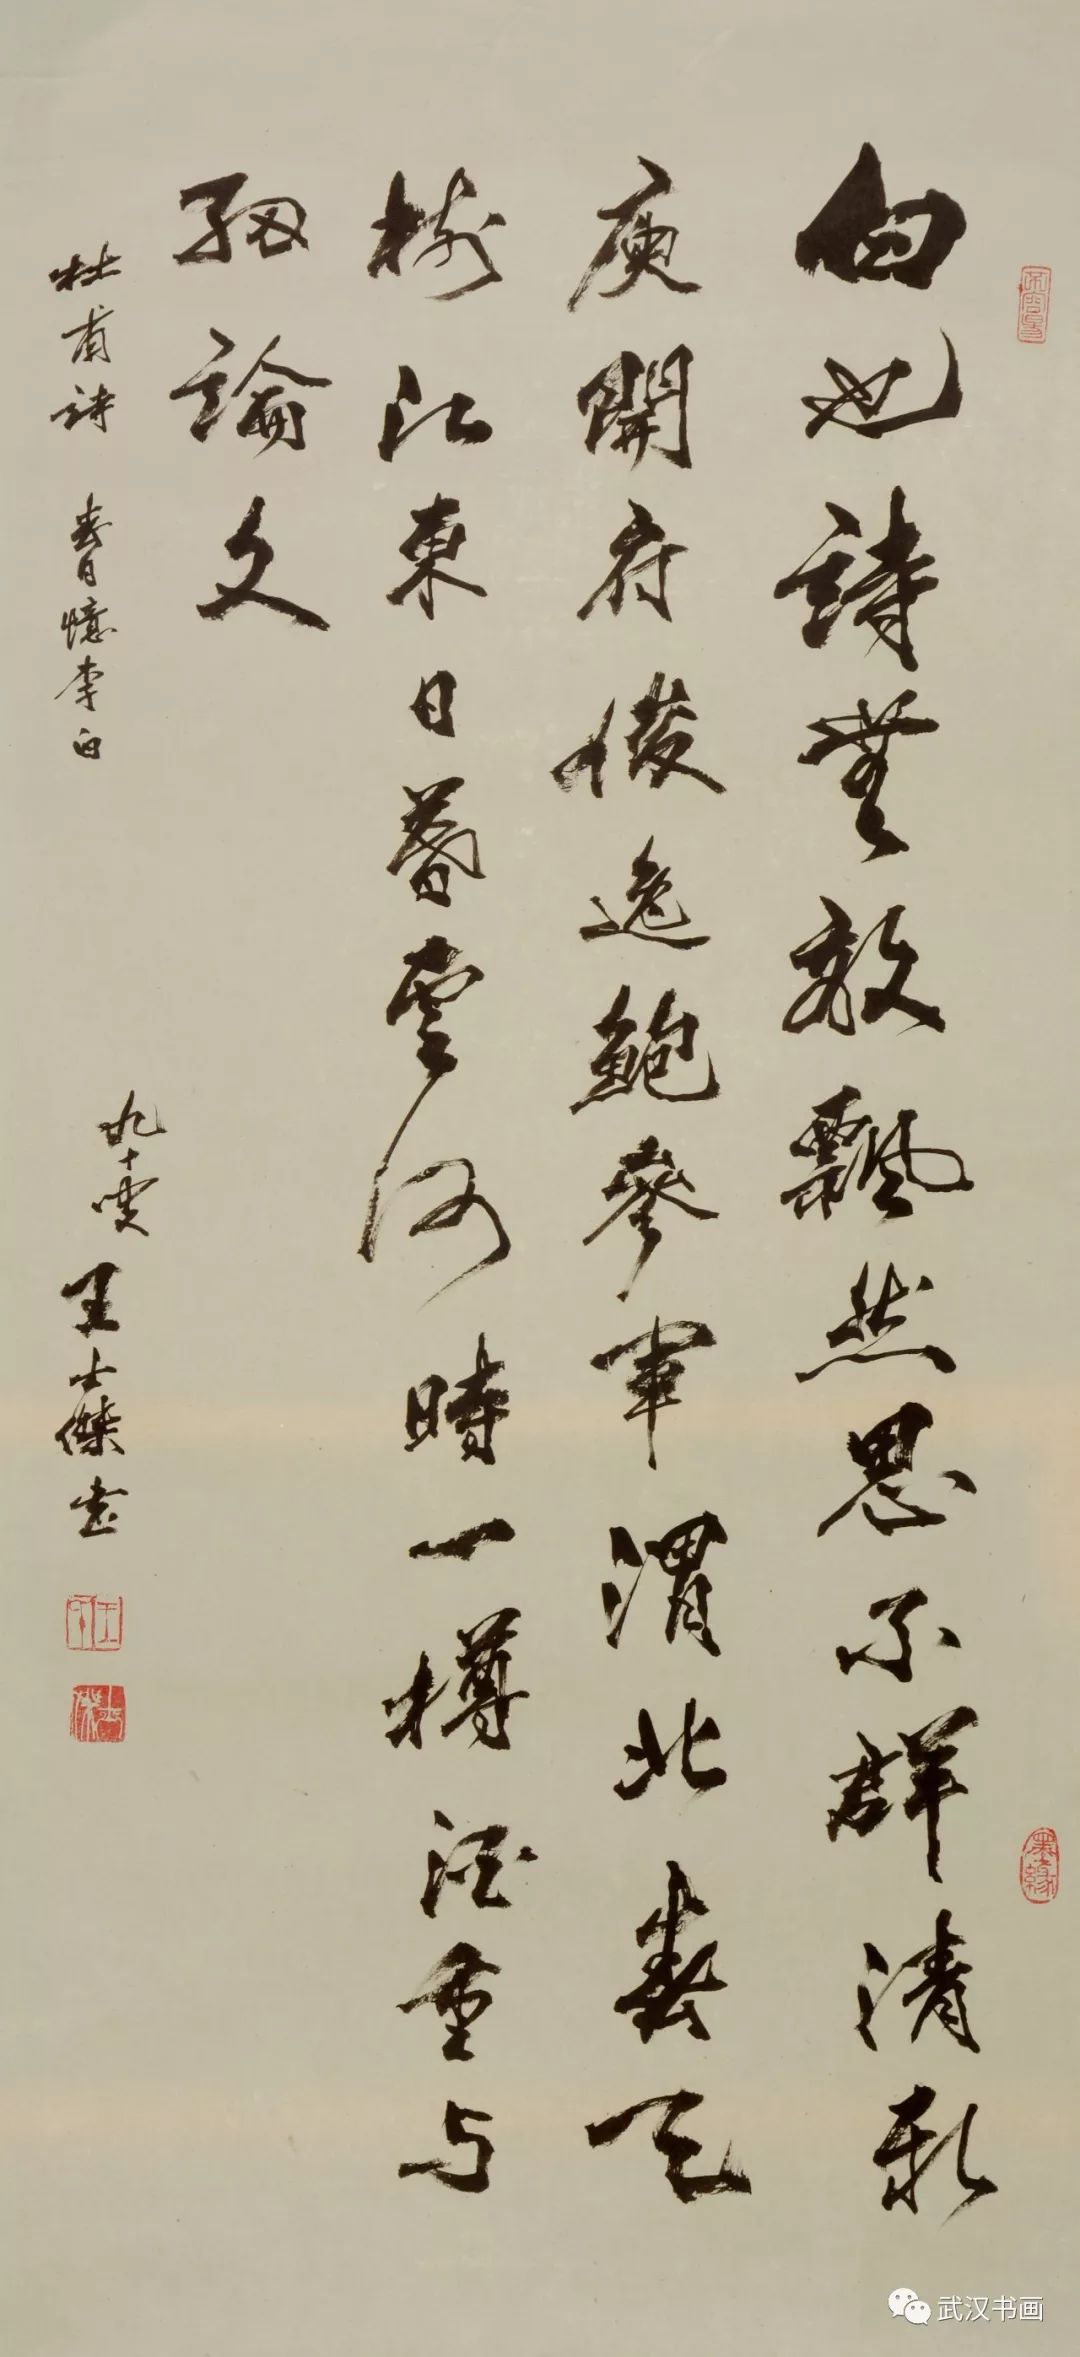 白也詩無敵飄然思不群清新
庾開府俊逸鮑參軍渭北春天
樹江東日暮雲何時一樽酒重與
細論文
杜甫詩 春日憶李白
九十叟 王士傑書
墨緣
武汉书画